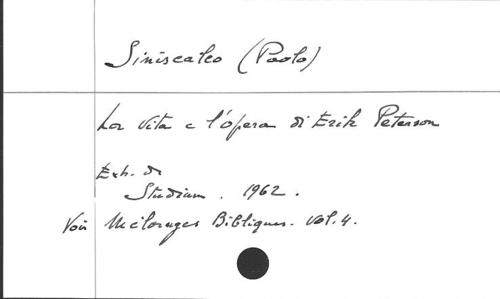 Siniscalco (Paolo)
La vita e l'opera di Erik Peterson
Ext. de
Studium. 1962.
Voir Mélanges Bibliques. vol. 4.